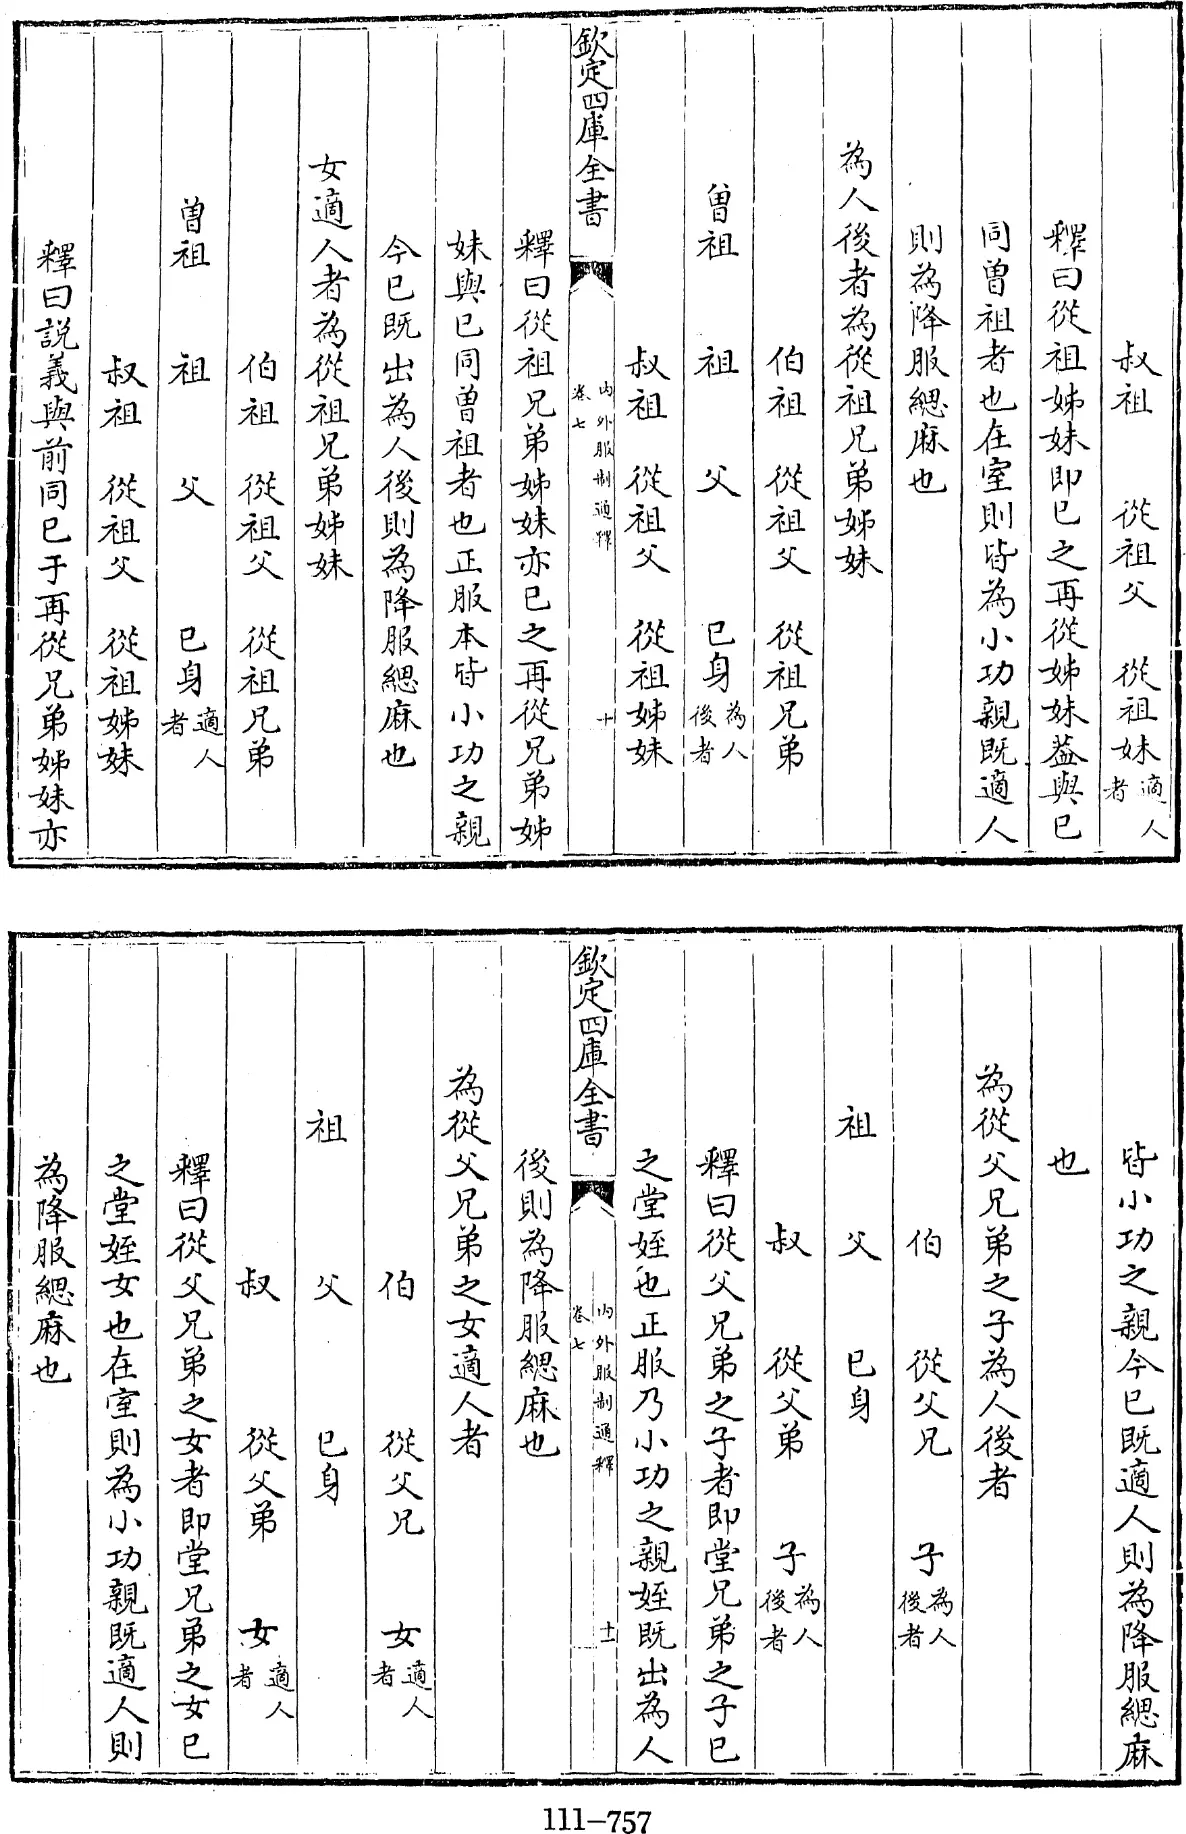 叔祖 從祖父 從祖妹適人者
釋曰從祖姊妹即已之再從姊妹葢與已
同曽祖者也在室則皆為小功親既適人
則為降服緦麻也
為人後者為從祖兄弟姊妹
伯祖 從祖父 從祖兄弟
曽祖 祖 父 已身為人後者
叔祖 從祖父 從祖姊妹
欽定四庫全書 內外服制通釋 卷七 十
釋曰從祖兄弟姊妹亦已之再從兄弟姊
妹與已同曽祖者也正服本皆小功之親
今已既出為人後則為降服緦麻也
女適人者為從祖兄弟姊妹
伯祖 從祖父 從祖兄弟
曽祖 祖 父 已身適人者
叔祖 從祖父 從祖姊妹
釋曰説義與前同已于再從兄弟姊妹亦
皆小功之親今已既適人則為降服緦麻
也
為從父兄弟之子為人後者
伯 從父兄 子為人後者
祖 父 已身
叔 從父弟 子為人後者
釋曰從父兄弟之子者即堂兄弟之子已
之堂姪也正服乃小功之親姪既出為人
欽定四庫全書 內外服制通釋 卷七 十一
後則為降服緦麻也
為從父兄弟之女適人者
伯 從父兄 女適人者
祖 父 已身
叔 從父弟 女適人者
釋曰從父兄弟之女者即堂兄弟之女已
之堂姪女也在室則為小功親既適人則
為降服緦麻也
111–757